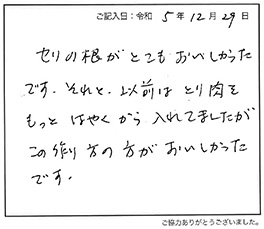 ご記入日：令和 5 年 12 月 29 日
セリの根がとてもおいしかった
です。それと、以前はとり肉を
もっとはやくから入れてましたが
この作り方の方がおいしかった
です。
ご協力ありがとうございました。